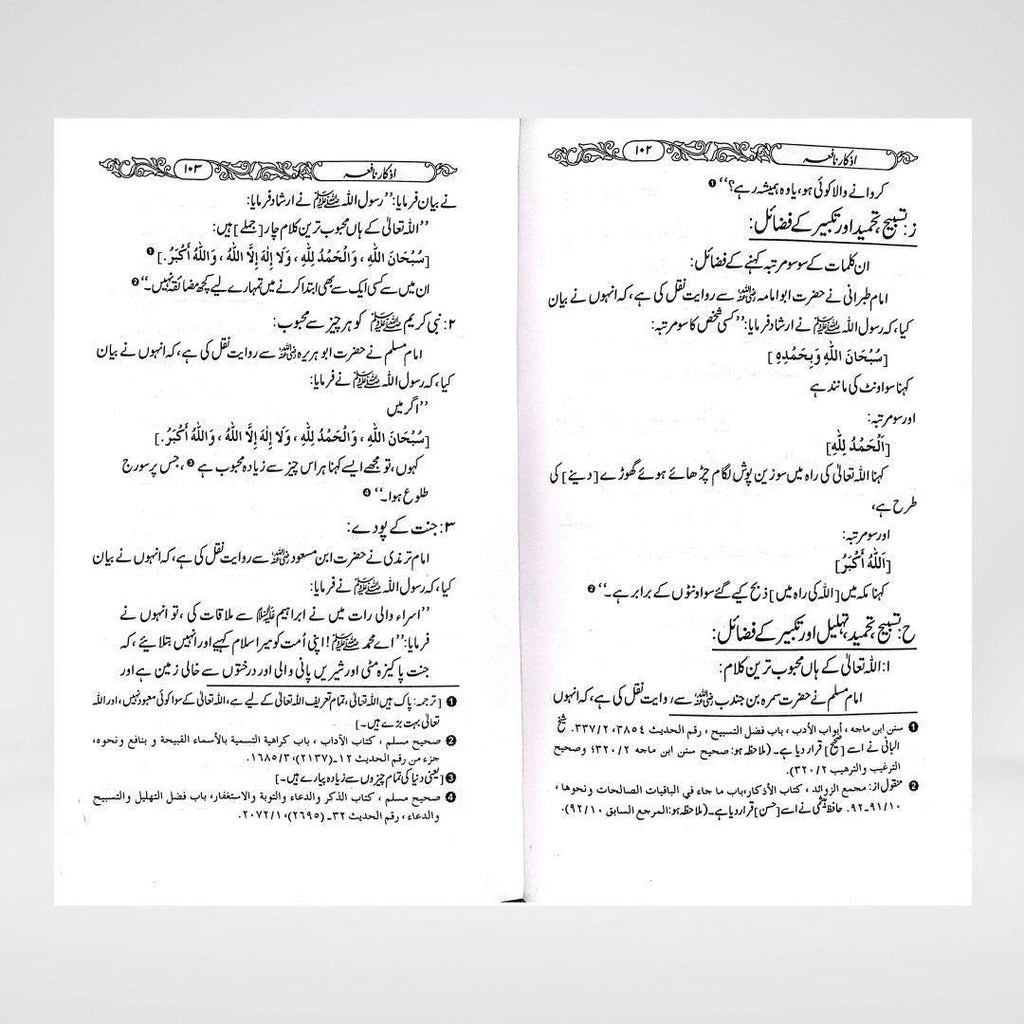 اذکار نافعہ
۱۰۲
کروانے والا کوئی ہو، یا وہ ہمیشہ رہے؟‘‘ ❶
ز: تسبیح، تحمید اور تکبیر کے فضائل:
ان کلمات کے سو سو مرتبہ کہنے کے فضائل:
امام طبرانی نے حضرت ابو امامہ رضی اللہ عنہ سے روایت نقل کی ہے، کہ انہوں نے بیان
کیا، کہ رسول اللہ ﷺ نے ارشاد فرمایا: ’’کسی شخص کا سو مرتبہ:
[سُبْحَانَ اللّٰهِ وَبِحَمْدِهِ]
کہنا سو اونٹ کی مانند ہے
اور سو مرتبہ:
[اَلْحَمْدُ لِلّٰهِ]
کہنا اللہ تعالیٰ کی راہ میں سو زین پوش لگام چڑھائے ہوئے گھوڑے [دینے] کی
طرح ہے،
اور سو مرتبہ:
[اَللّٰهُ أَكْبَرُ]
کہنا مکہ میں [اللہ کی راہ میں] ذبح کیے گئے سو اونٹوں کے برابر ہے۔‘‘ ❷
ح: تسبیح، تحمید، تہلیل اور تکبیر کے فضائل:
۱: اللہ تعالیٰ کے ہاں محبوب ترین کلام:
امام مسلم نے حضرت سمرہ بن جندب رضی اللہ عنہ سے روایت نقل کی ہے، کہ انہوں
❶ سنن ابن ماجه ، أبواب الأدب ، باب فضل التسبيح ، رقم الحديث ٣٨٥٤، ٣٣٧/٢. شیخ
البانی نے اسے [صحیح] قرار دیا ہے۔ (ملاحظہ ہو: صحيح سنن ابن ماجه ٣٢٠/٢؛ وصحيح
الترغيب والترهيب ٣٢٠/٢).
❷ منقول از: مجمع الزوائد ، كتاب الأذكار،باب ما جاء في الباقيات الصالحات ونحوها ،
٩٢-٩١/١٠. حافظ ہیثمی نے اسے [حسن] قرار دیا ہے۔ (ملاحظہ ہو: المرجع السابق ٩٢/١٠)
اذکار نافعہ
۱۰۳
نے بیان فرمایا: ’’رسول اللہ ﷺ نے ارشاد فرمایا:
’’اللہ تعالیٰ کے ہاں محبوب ترین کلام چار [جملے] ہیں:
[سُبْحَانَ اللّٰهِ ، وَالْحَمْدُ لِلّٰهِ ، وَلَا إِلٰهَ إِلَّا اللّٰهُ ، وَاللّٰهُ أَكْبَرُ.] ❶
ان میں سے کسی ایک سے بھی ابتدا کرنے میں تمہارے لیے کچھ مضائقہ نہیں۔‘‘ ❷
۲: نبی کریم ﷺ کو ہر چیز سے محبوب:
امام مسلم نے حضرت ابو ہریرہ رضی اللہ عنہ سے روایت نقل کی ہے، کہ انہوں نے بیان
کیا، کہ رسول اللہ ﷺ نے فرمایا:
’’اگر میں
[سُبْحَانَ اللّٰهِ ، وَالْحَمْدُ لِلّٰهِ ، وَلَا إِلٰهَ إِلَّا اللّٰهُ ، وَاللّٰهُ أَكْبَرُ.]
کہوں، تو مجھے ایسے کہنا ہر اس چیز سے زیادہ محبوب ہے ❸، جس پر سورج
طلوع ہوا۔‘‘ ❹
۳: جنت کے پودے:
امام ترمذی نے حضرت ابن مسعود رضی اللہ عنہ سے روایت نقل کی ہے، کہ انہوں نے بیان
کیا، کہ رسول اللہ ﷺ نے فرمایا:
’’اسراء والی رات میں نے ابراہیم علیہ السلام سے ملاقات کی، تو انہوں نے
فرمایا: ’’اے محمد ﷺ! اپنی اُمت کو میرا سلام کہیے اور انہیں بتلائیے، کہ
جنت پاکیزہ مٹی اور شیریں پانی والی اور درختوں سے خالی زمین ہے اور
❶ [ترجمہ: پاک ہیں اللہ تعالیٰ، تمام تعریف اللہ تعالیٰ کے لیے ہے، اللہ تعالیٰ کے سوا کوئی معبود نہیں، اور اللہ
تعالیٰ بہت بڑے ہیں۔]
❷ صحيح مسلم ، كتاب الآداب ، باب كراهية التسمية بالأسماء القبيحة و بنافع ونحوه،
جزء من رقم الحديث ١٢-(٢١٣٧)، ١٦٨٥/٣.
❸ [یعنی دنیا کی تمام چیزوں سے زیادہ پیارے ہیں۔]
❹ صحيح مسلم ، كتاب الذكر والدعاء والتوبة والاستغفار، باب فضل التهليل والتسبيح
والدعاء ، رقم الحديث ٣٢-(٢٦٩٥)، ٢٠٧٢/١٠.